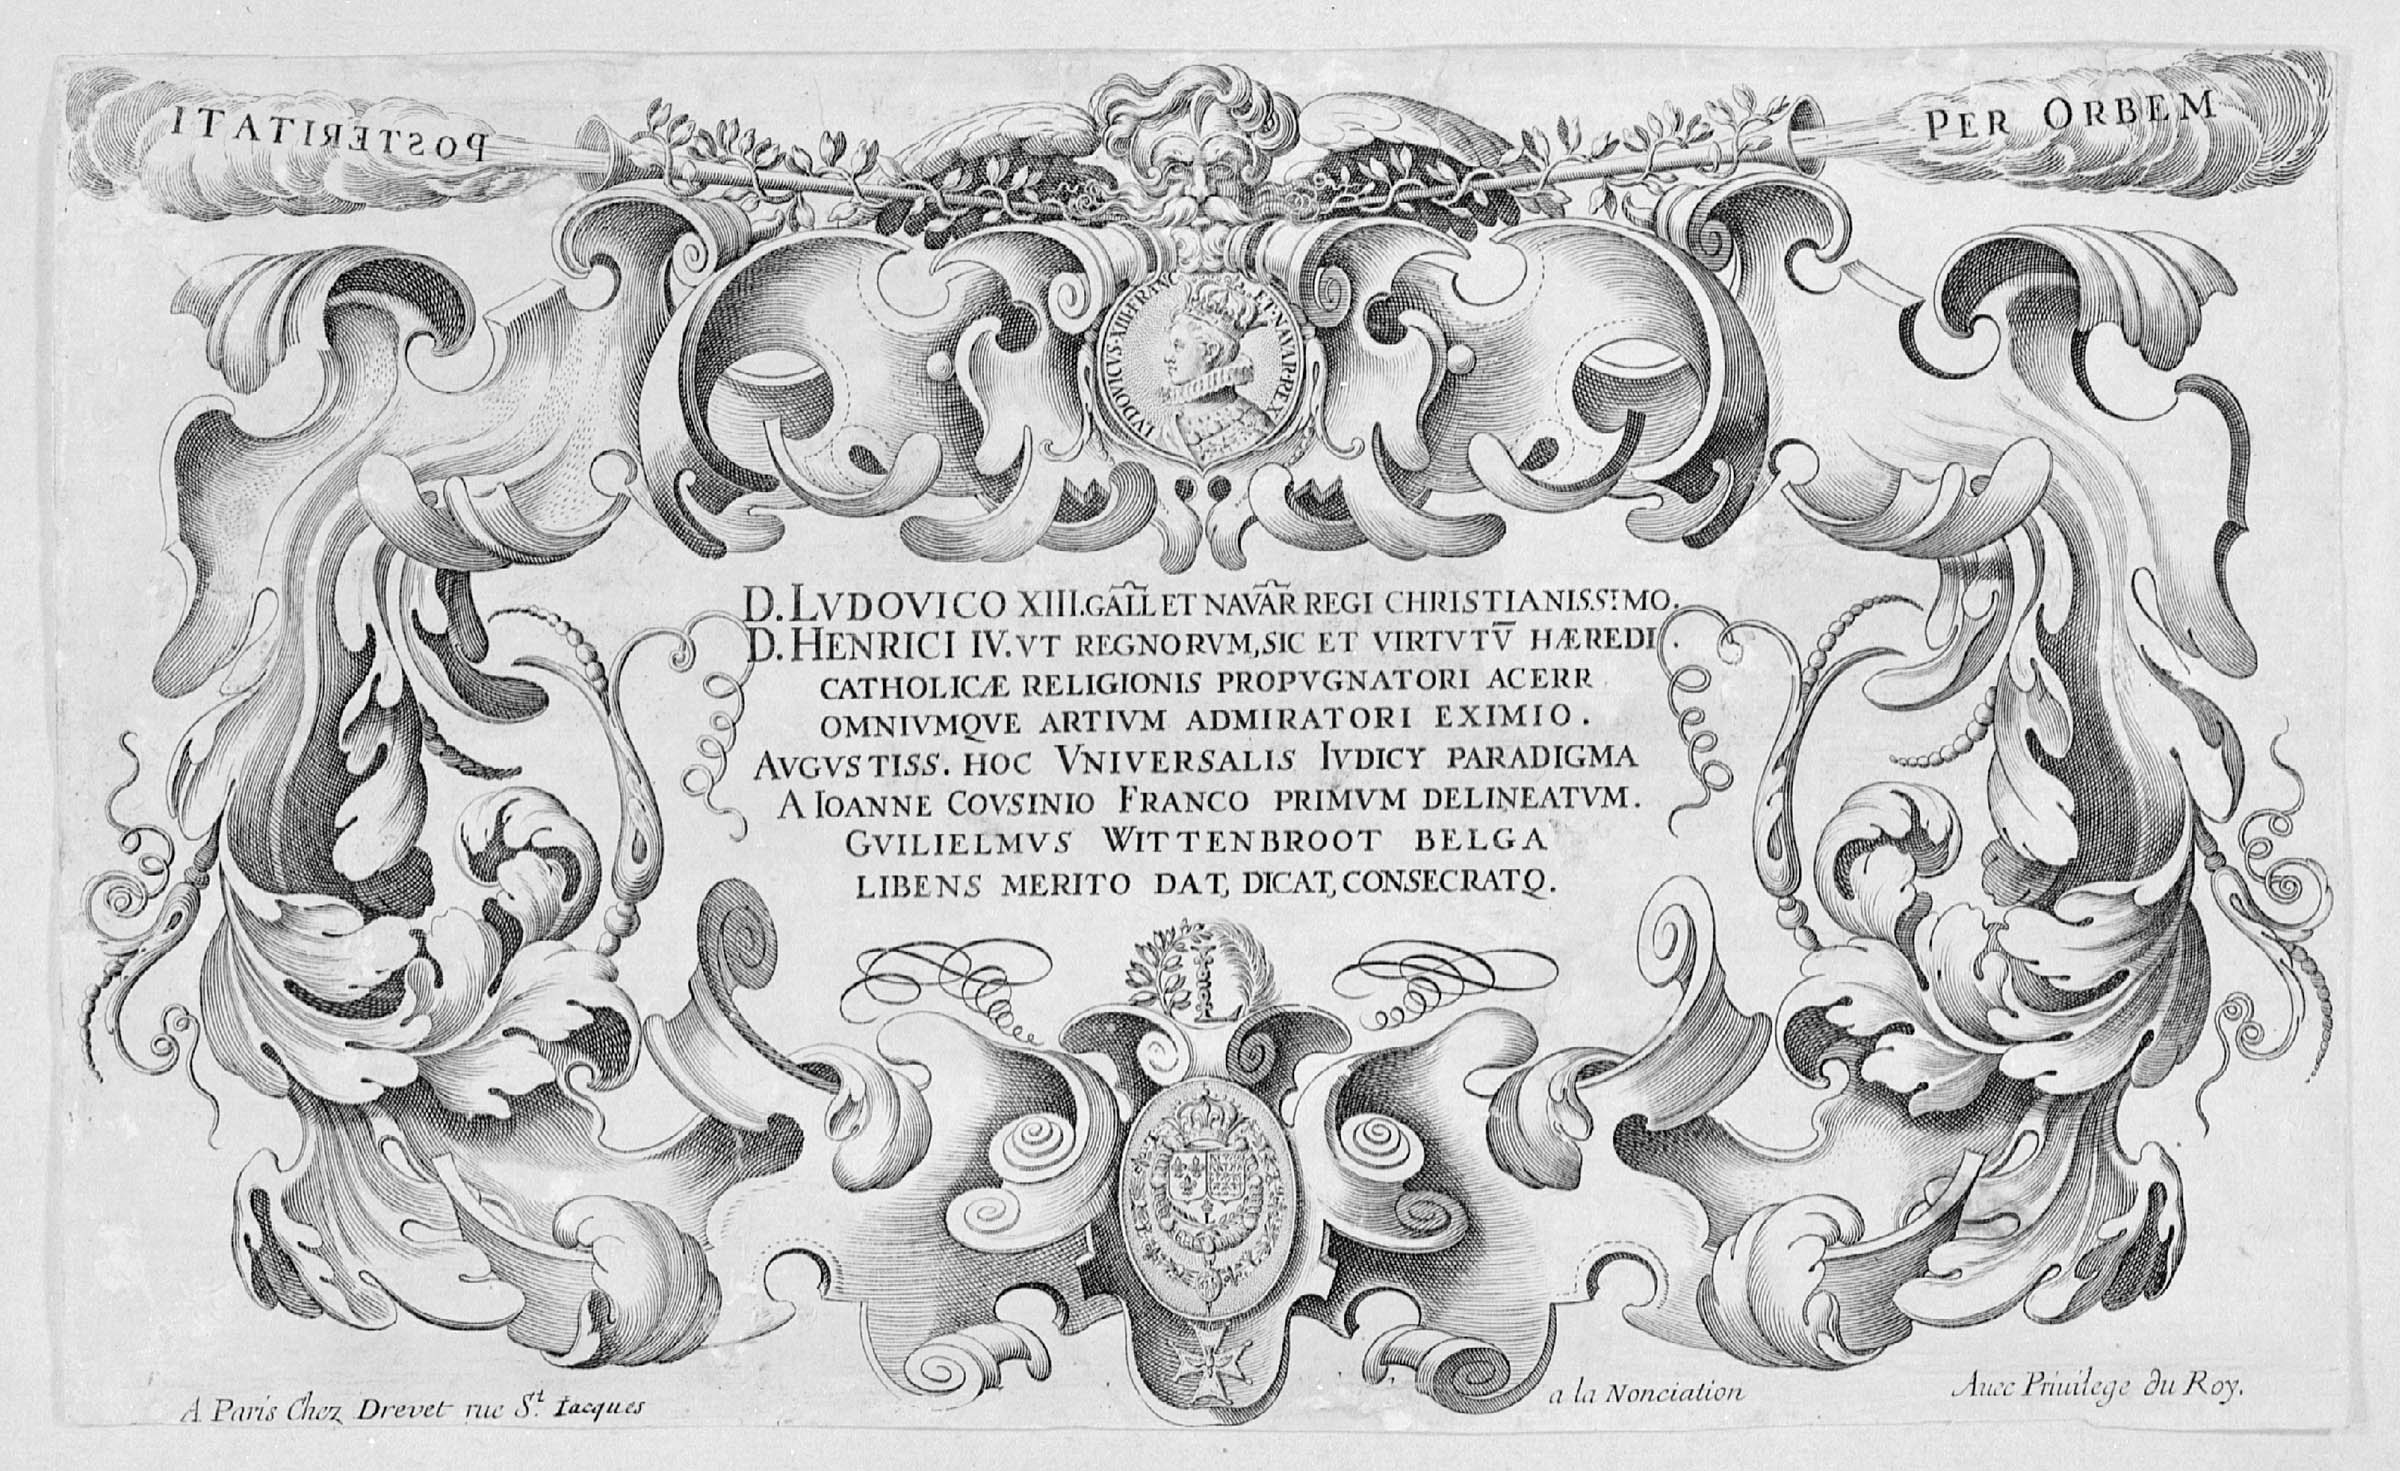 POSTERITATI
PER ORBEM
LVDOVICVS·XIII·FRANC· ET·NAVAR·REX
D. LVDOVICO XIII. GALL ET NAVAR REGI CHRISTIANISS.MO.
D. HENRICI IV. VT REGNORVM, SIC ET VIRTVTV̄ HÆREDI.
CATHOLICÆ RELIGIONIS PROPVGNATORI ACERR
OMNIVMQVE ARTIVM ADMIRATORI EXIMIO.
AVGVSTISS. HOC VNIVERSALIS IVDICY PARADIGMA
A IOANNE COVSINIO FRANCO PRIMVM DELINEATVM.
GVILIELMVS WITTENBROOT BELGA
LIBENS MERITO DAT, DICAT, CONSECRATQ.
L
A Paris Chez Drevet rue S.t Iacques
a la Nonciation
Auec Priuilege du Roy.